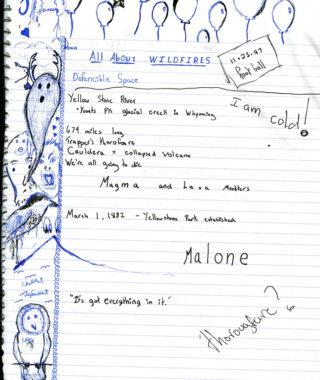 All About WILDFIRES
11.25.97
Foot ball
Defencible Space
I am cold!
Yellow Stone River
glacial creek in Whyoming
674 miles long
Trapper's Thorofare
Cauldera = collapsed volcano
We're all going to die
Magma and Lava Monsters
March 1, 1982 - Yellowstone Park established
Malone
"It's got everything in it."
thoroughfare?